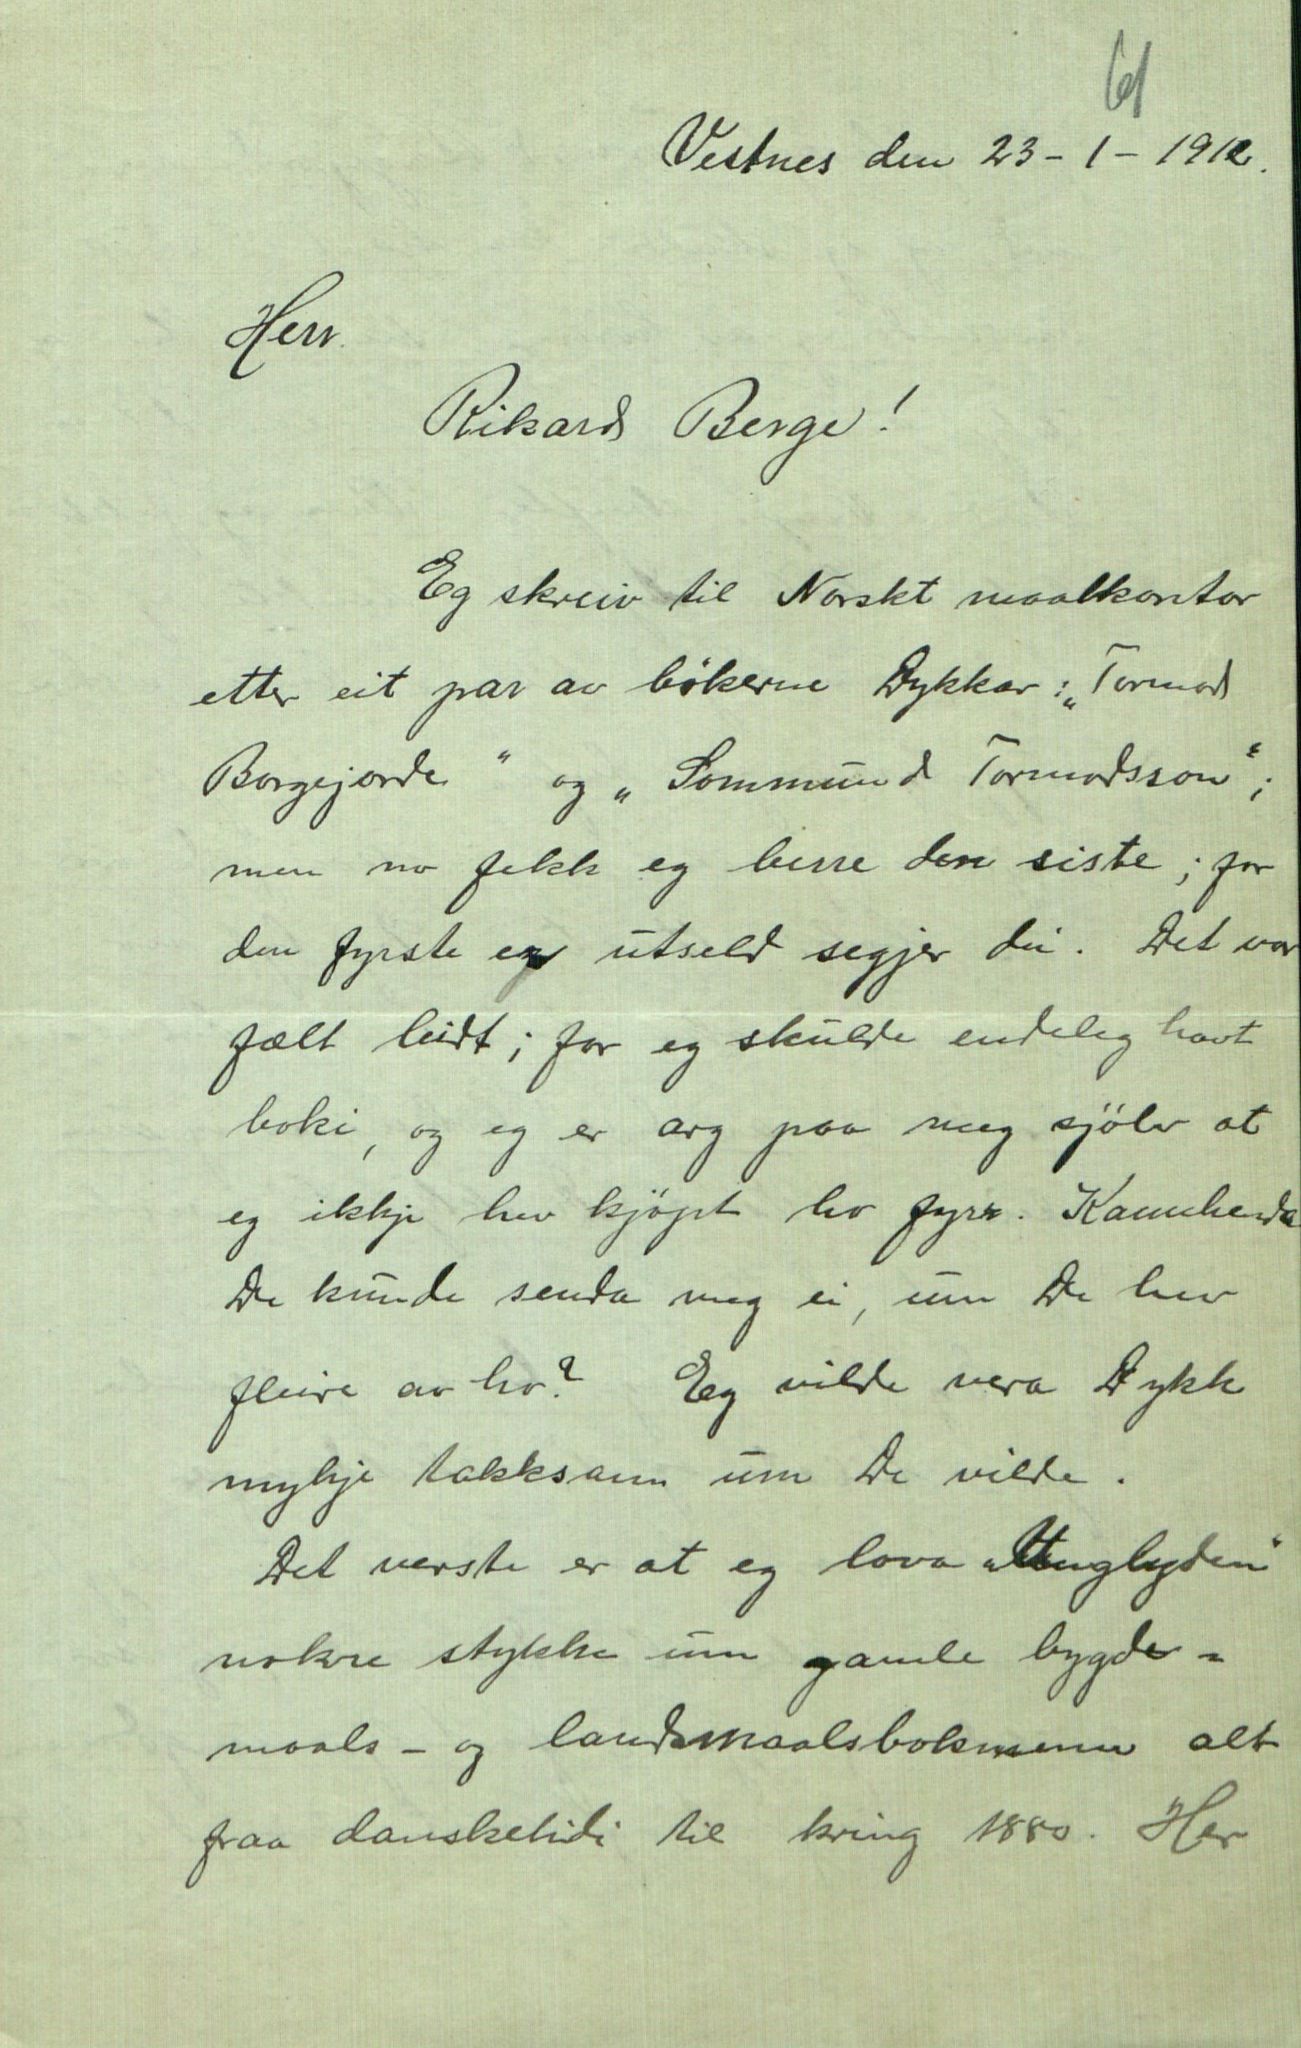 61
Vestnes den 23-1-1912.
Herr.
Rikard Berge!
Eg skreiv til Norskt maalkontor
etter eit par av bökerne Dykkar: „Tormod
Borgejorde“ og „Sommund Tormodsson“;
men no fekk eg berre den siste; for
den fyrste er utseld segjer dei. Det var
fælt leidt; for eg skulde endeleg havt
boki, og eg er arg paa meg sjölv at
eg ikkje hev kjöpt ho fyrr. Kannhenda
De kunde senda meg ei, um De hev
fleire av ho? Eg vilde vera Dykk
mykje takksam um De vilde.
Det verste er at eg lova „Unglyden“
nokre stykke um gamle bygde-
maals- og landsmaalsbokmenn alt
fraa dansketidi til kring 1880. Her